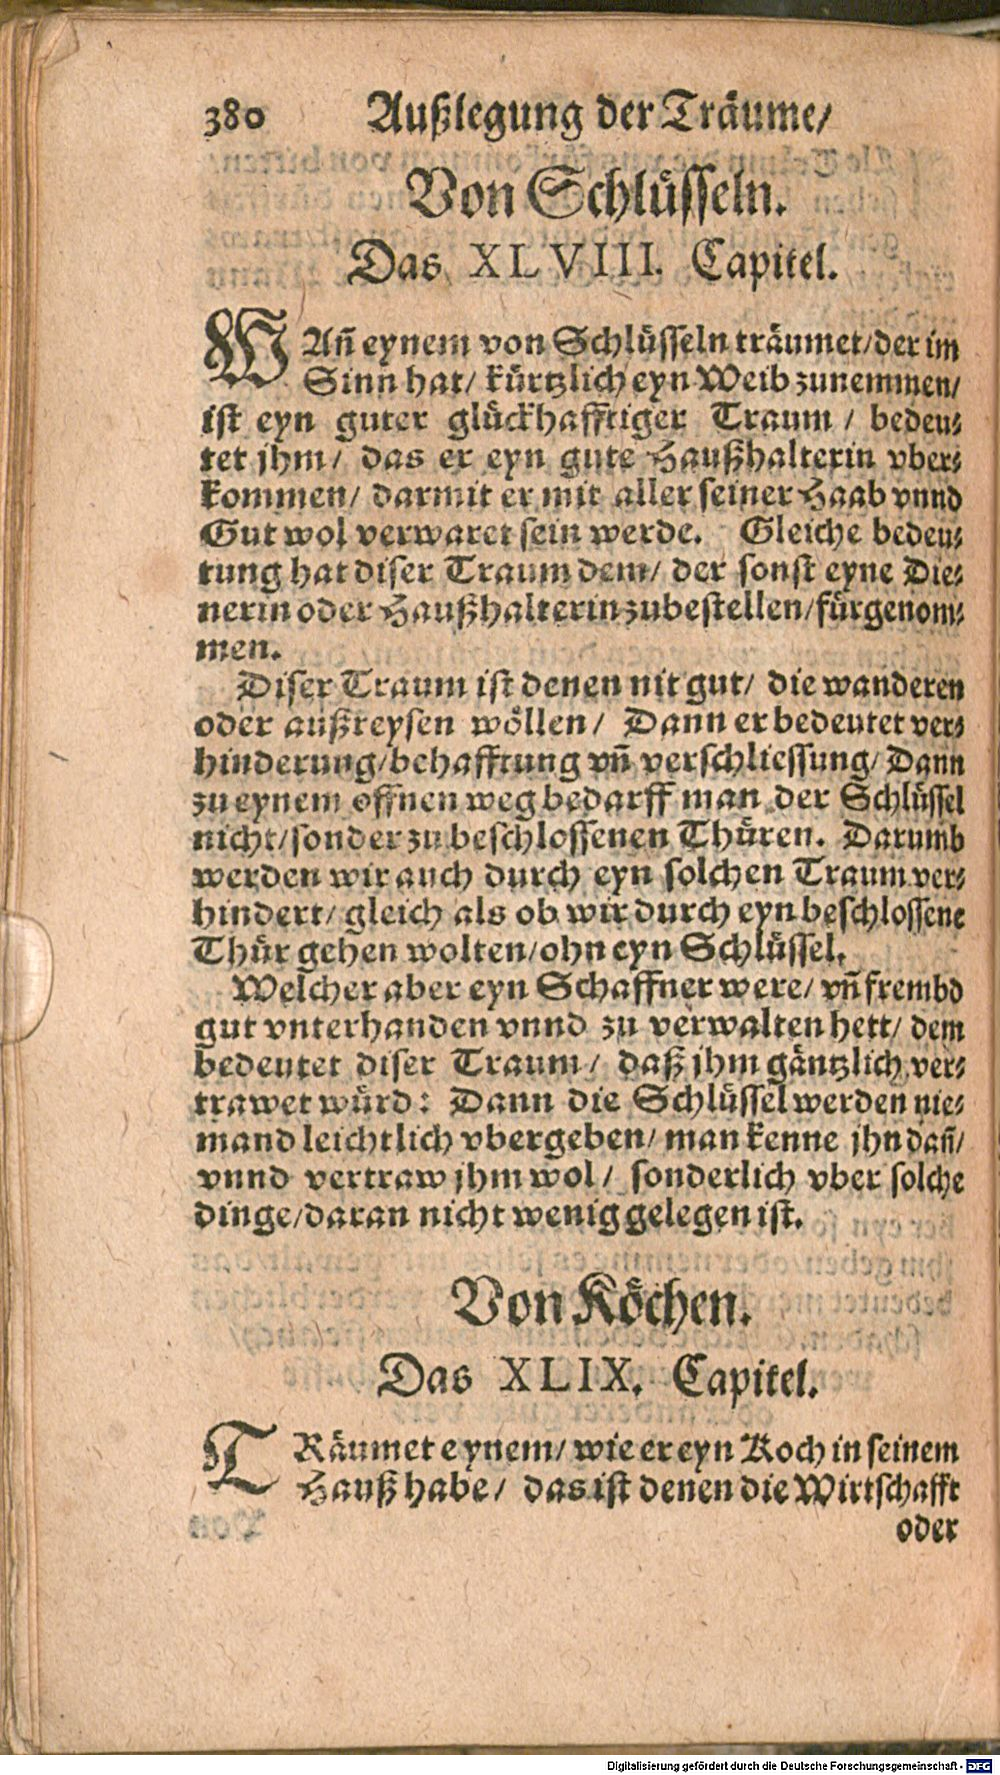 380 Außlegung der Träume/
Von Schlüsseln.
Das XLVIII. Capitel.
WAñ eynem von Schlüsseln träumet/der im
Sinn hat/ kürtzlich eyn Weib zunemmen/
ist eyn guter glückhafftiger Traum / bedeu⸗
tet jhm/ das er eyn gute Haußhalterin vber⸗
kommen/ darmit er mit aller seiner Haab vnnd
Gut wol verwaret sein werde. Gleiche bedeu⸗
tung hat diser Traum dem/ der sonst eyne Die⸗
nerin oder Haußhalterin zubestellen/fürgenom⸗
men.
Diser Traum ist denen nit gut/ die wanderen
oder außreysen wöllen/ Dann er bedeutet ver⸗
hinderung/behafftung vñ verschliessung/ Dann
zu eynem offnen weg bedarff man der Schlüssel
nicht/sonder zu beschlossenen Thüren. Darumb
werden wir auch durch eyn solchen Traum ver⸗
hindert/ gleich als ob wir durch eyn beschlossene
Thür gehen wolten/ohn eyn Schlüssel.
Welcher aber eyn Schaffner were/ vñ frembd
gut vnterhanden vnnd zu verwalten hett/ dem
bedeutet diser Traum/ daß jhm gäntzlich ver⸗
trawet würd: Dann die Schlüssel werden nie⸗
mand leichtlich vbergeben/ man kenne jhn dañ/
vnnd vertraw jhm wol/ sonderlich vber solche
dinge/daran nicht wenig gelegen ist.
Von Köchen.
Das XLIX. Capitel.
TRäumet eynem/ wie er eyn Koch in seinem
Hauß habe/ das ist denen die Wirtschafft
oder
Digitalisierung gefördert durch die Deutsche Forschungsgemeinschaft - DFG